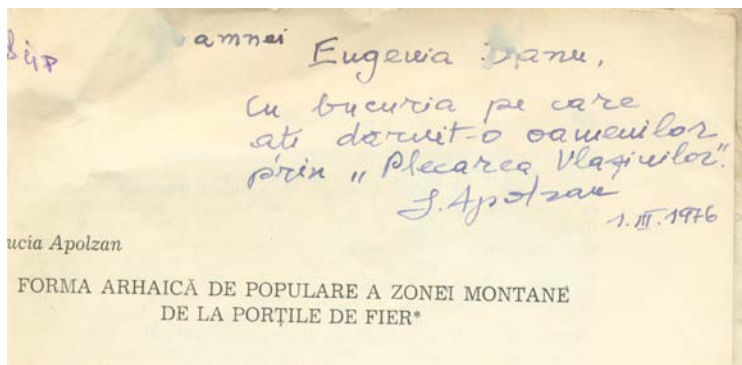 amnei
Eugenia
Cu bucuria pe care
ați dăruit-o oamenilor
prin „Plecarea Vlașinilor".
L. Apolzan
1. III. 1976
ucia Apolzan
FORMA ARHAICĂ DE POPULARE A ZONEI MONTANE
DE LA PORȚILE DE FIER*